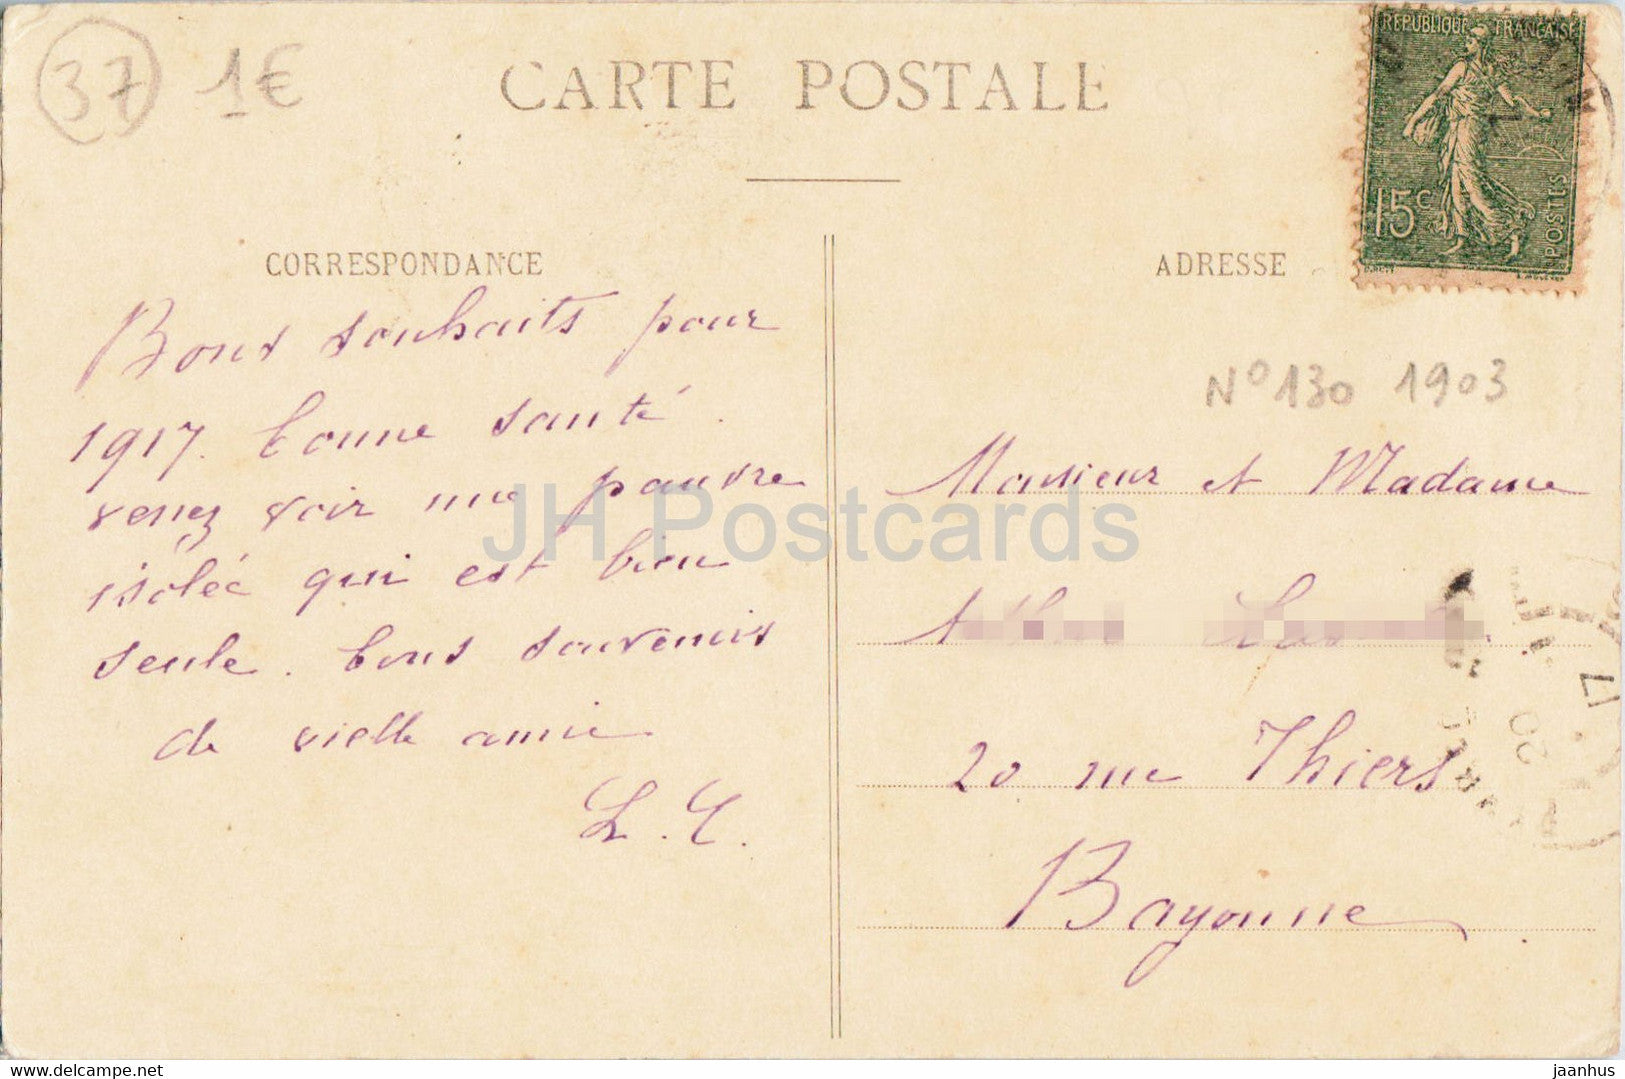 37 1€
CARTE POSTALE
REPUBLIQUE FRANÇAISE
15c
POSTES
CORRESPONDANCE
Bons souhaits pour
1917. bonne santé.
venez voir une pauvre
isolée qui est bien
seule. bons souvenirs
de vielle amie
L. C.
ADRESSE
N° 130 1903
Monsieur et Madame
20 rue Thiers
Bayonne.
JH Postcards
hippostcard.com
jaanhus